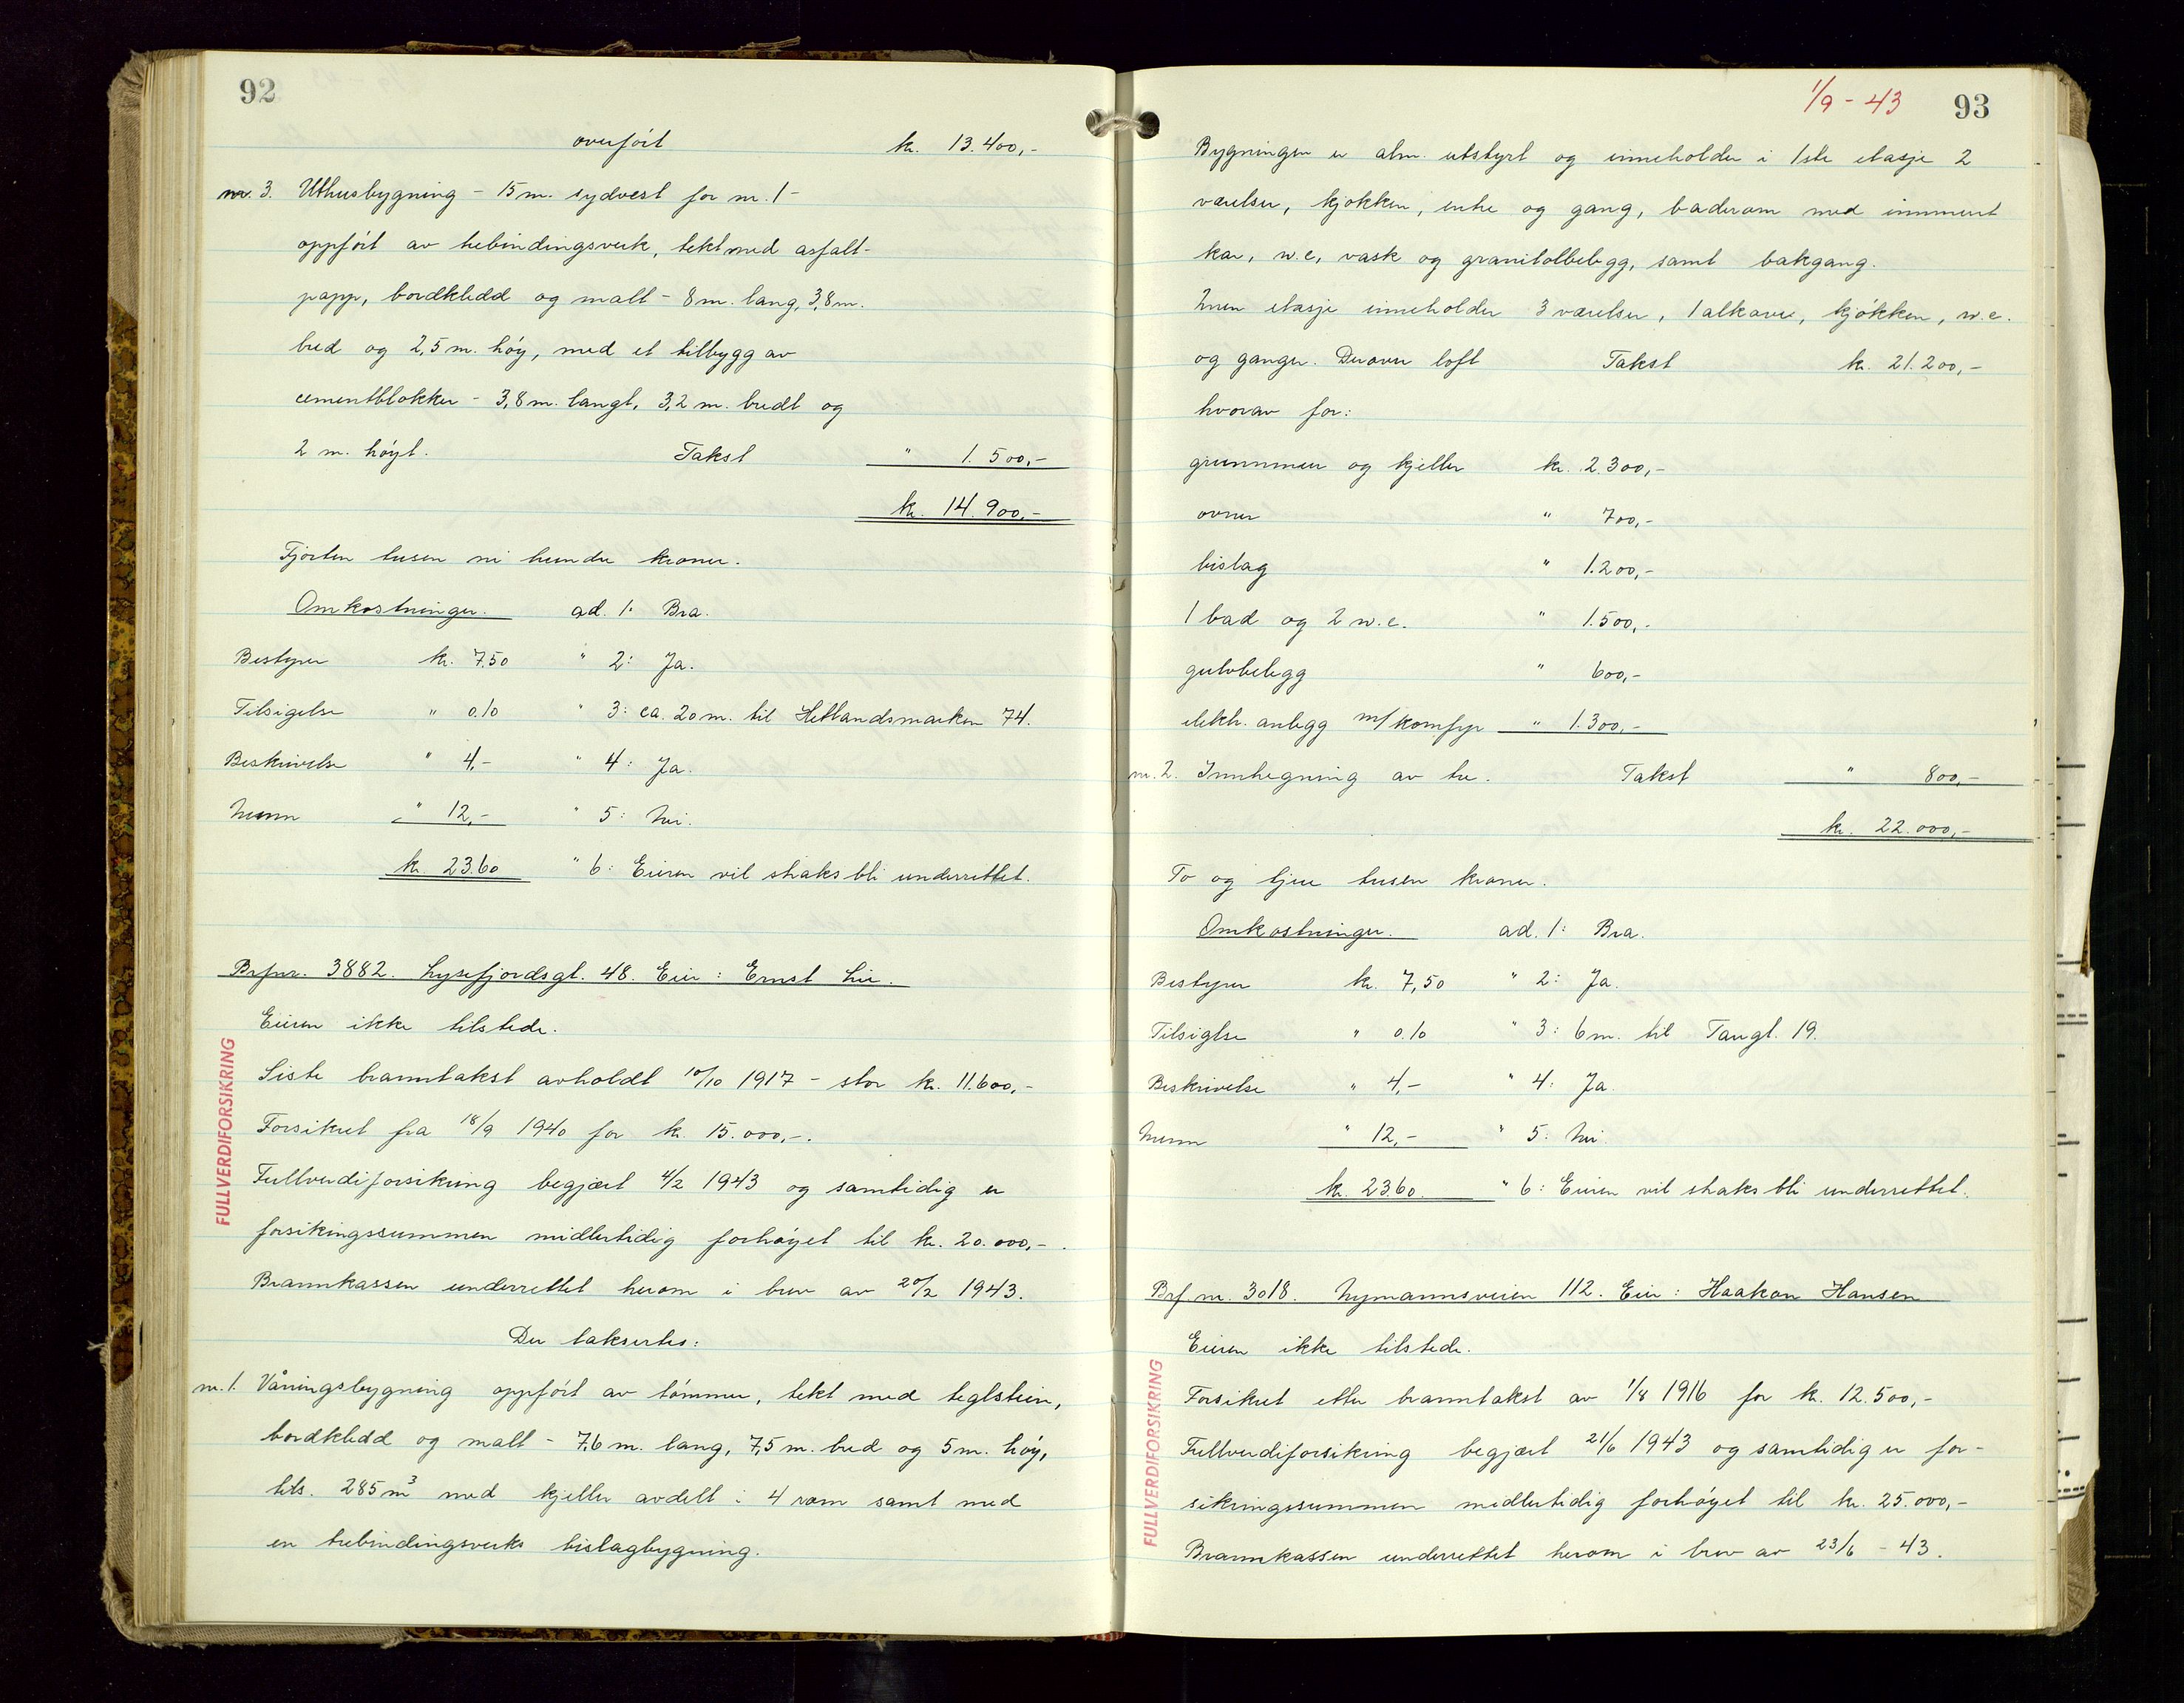 92
overført kr. 13.400,-
nr. 3. Uthusbygning - 15 m. sydvest for nr. 1 -
oppført av trebindingsverk, tekt med asfalt-
papp, bordkledd og malt - 8 m. lang, 3,8 m.
bred og 2,5 m. høy, med et tilbygg av
cementblokker - 3,8 m. langt, 3,2 m. bredt og
2 m. høyt. Takst " 1.500,-
kr. 14.900,-
Fjorten tusen ni hundre kroner.
Omkostninger. ad. 1. Bra.
Bestyrer kr. 7.50 " 2: Ja.
Tilsigelse " 0.10 " 3: ca. 20 m. til Hetlandsmarken 74.
Beskrivelse " 4,- " 4: Ja.
Menn " 12,- " 5: Nei.
kr. 23.60 " 6: Eieren vil straks bli underrettet.
Brfnr. 3882. Lysefjordsgt. 48. Eier: Ernst Lie.
Eieren ikke tilstede.
FULLVERDIFORSIKRING
Siste branntakst avholdt 10/10 1917 - stor kr. 11.600,-
Forsikret fra 18/9 1940 for kr. 15.000,-.
Fullverdiforsikring begjært 4/2 1943 og samtidig er
forsikringssummen midlertidig forhøyet til kr. 20.000,-.
Brannkassen underrettet herom i brev av 20/2 1943.
Der taksertes:
nr. 1. Våningsbygning oppført av tømmer, tekt med teglstein,
bordkledd og malt - 7,6 m. lang, 7,5 m. bred og 5 m. høy,
tils. 285 m³ med kjeller avdelt i 4 rom samt med
en trebindingsverks bislagbygning.
1/9 - 43 93
Bygningen er alm. utstyrt og inneholder i 1ste etasje 2
værelser, kjøkken, entre og gang, baderom med innmurt
kar, w.c, vask og granitolbelegg, samt bakgang.
Annen etasje inneholder 3 værelser, 1 alkove, kjøkken, w.c.
og ganger. Derover loft Takst kr. 21.200,-
hvorav for:
grunnmur og kjeller kr. 2.300,-
ovner " 700,-
bislag " 1.200,-
1 bad og 2 w.c. " 1.500,-
gulvbelegg " 600,-
elektr. anlegg m/komfyr " 1.300,-
nr. 2. Innhegning av tre. Takst " 800,-
kr. 22.000,-
To og tjue tusen kroner.
Omkostninger. ad. 1: Bra.
Bestyrer kr. 7,50 " 2: Ja.
Tilsiglse " 0.10 " 3: 6 m. til Taugt. 19.
Beskrivelse " 4,- " 4: Ja.
Menn " 12,- " 5: Nei.
kr. 23.60. " 6: Eieren vil straks bli underrettet.
Brf nr. 3018. Nymannsveien 112. Eier: Haakon Hansen
Eieren ikke tilstede.
FULLVERDIFORSIKRING
Forsikret etter branntakst av 1/8 1916 for kr. 12.500,-
Fullverdiforsikring begjært 21/6 1943 og samtidig er for-
sikringssummen midlertidig forhøyet til kr. 25.000,-
Brannkassen underrettet herom i brev av 23/6 - 43.